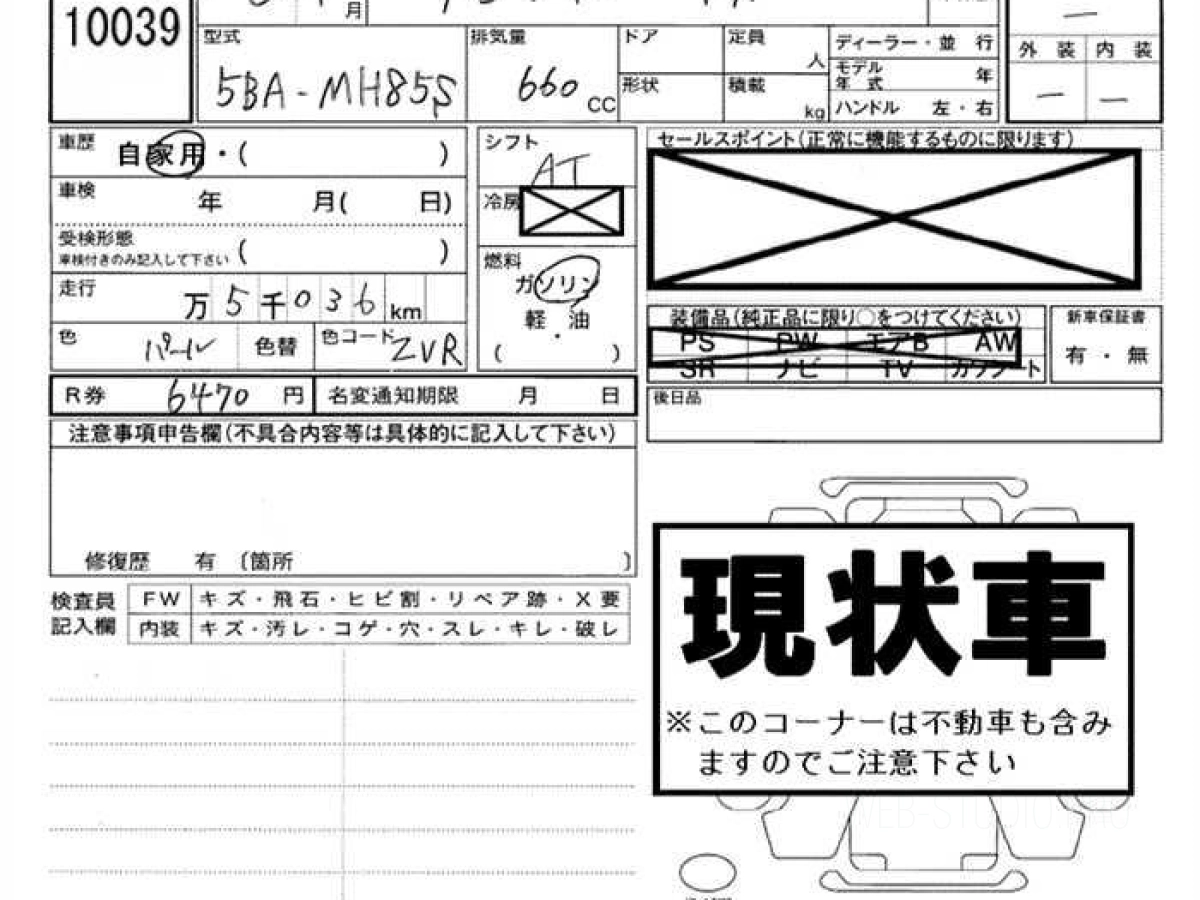 10039
月
型式 5BA-MH85S
排気量 660 CC
ドア
形状
定員 人
積載 kg
ディーラー・並 行
モデル年 式 年
ハンドル 左・右
外 装 内 装
— —
車歴 自家用・( )
車検 年 月( 日)
受検形態
車検付きのみ記入して下さい ( )
走行 万 5 千 0 3 6 km
色 パール 色替 色コード ZVR
シフト AT
冷房
燃料
ガソリン
・
軽 油
( )
セールスポイント(正常に機能するものに限ります)
装備品(純正品に限り○をつけてください)
PS PW エアB AW
SR ナビ TV カワシート
新車保証書
有・無
R券 6470 円 名変通知期限 月 日
後日品
注意事項申告欄(不具合内容等は具体的に記入して下さい)
修復歴 有 〔箇所 〕
検査員記入欄
FW キズ・飛石・ヒビ割・リペア跡・X要
内装 キズ・汚レ・コゲ・穴・スレ・キレ・破レ
現状車
※このコーナーは不動車も含み
ますのでご注意下さい